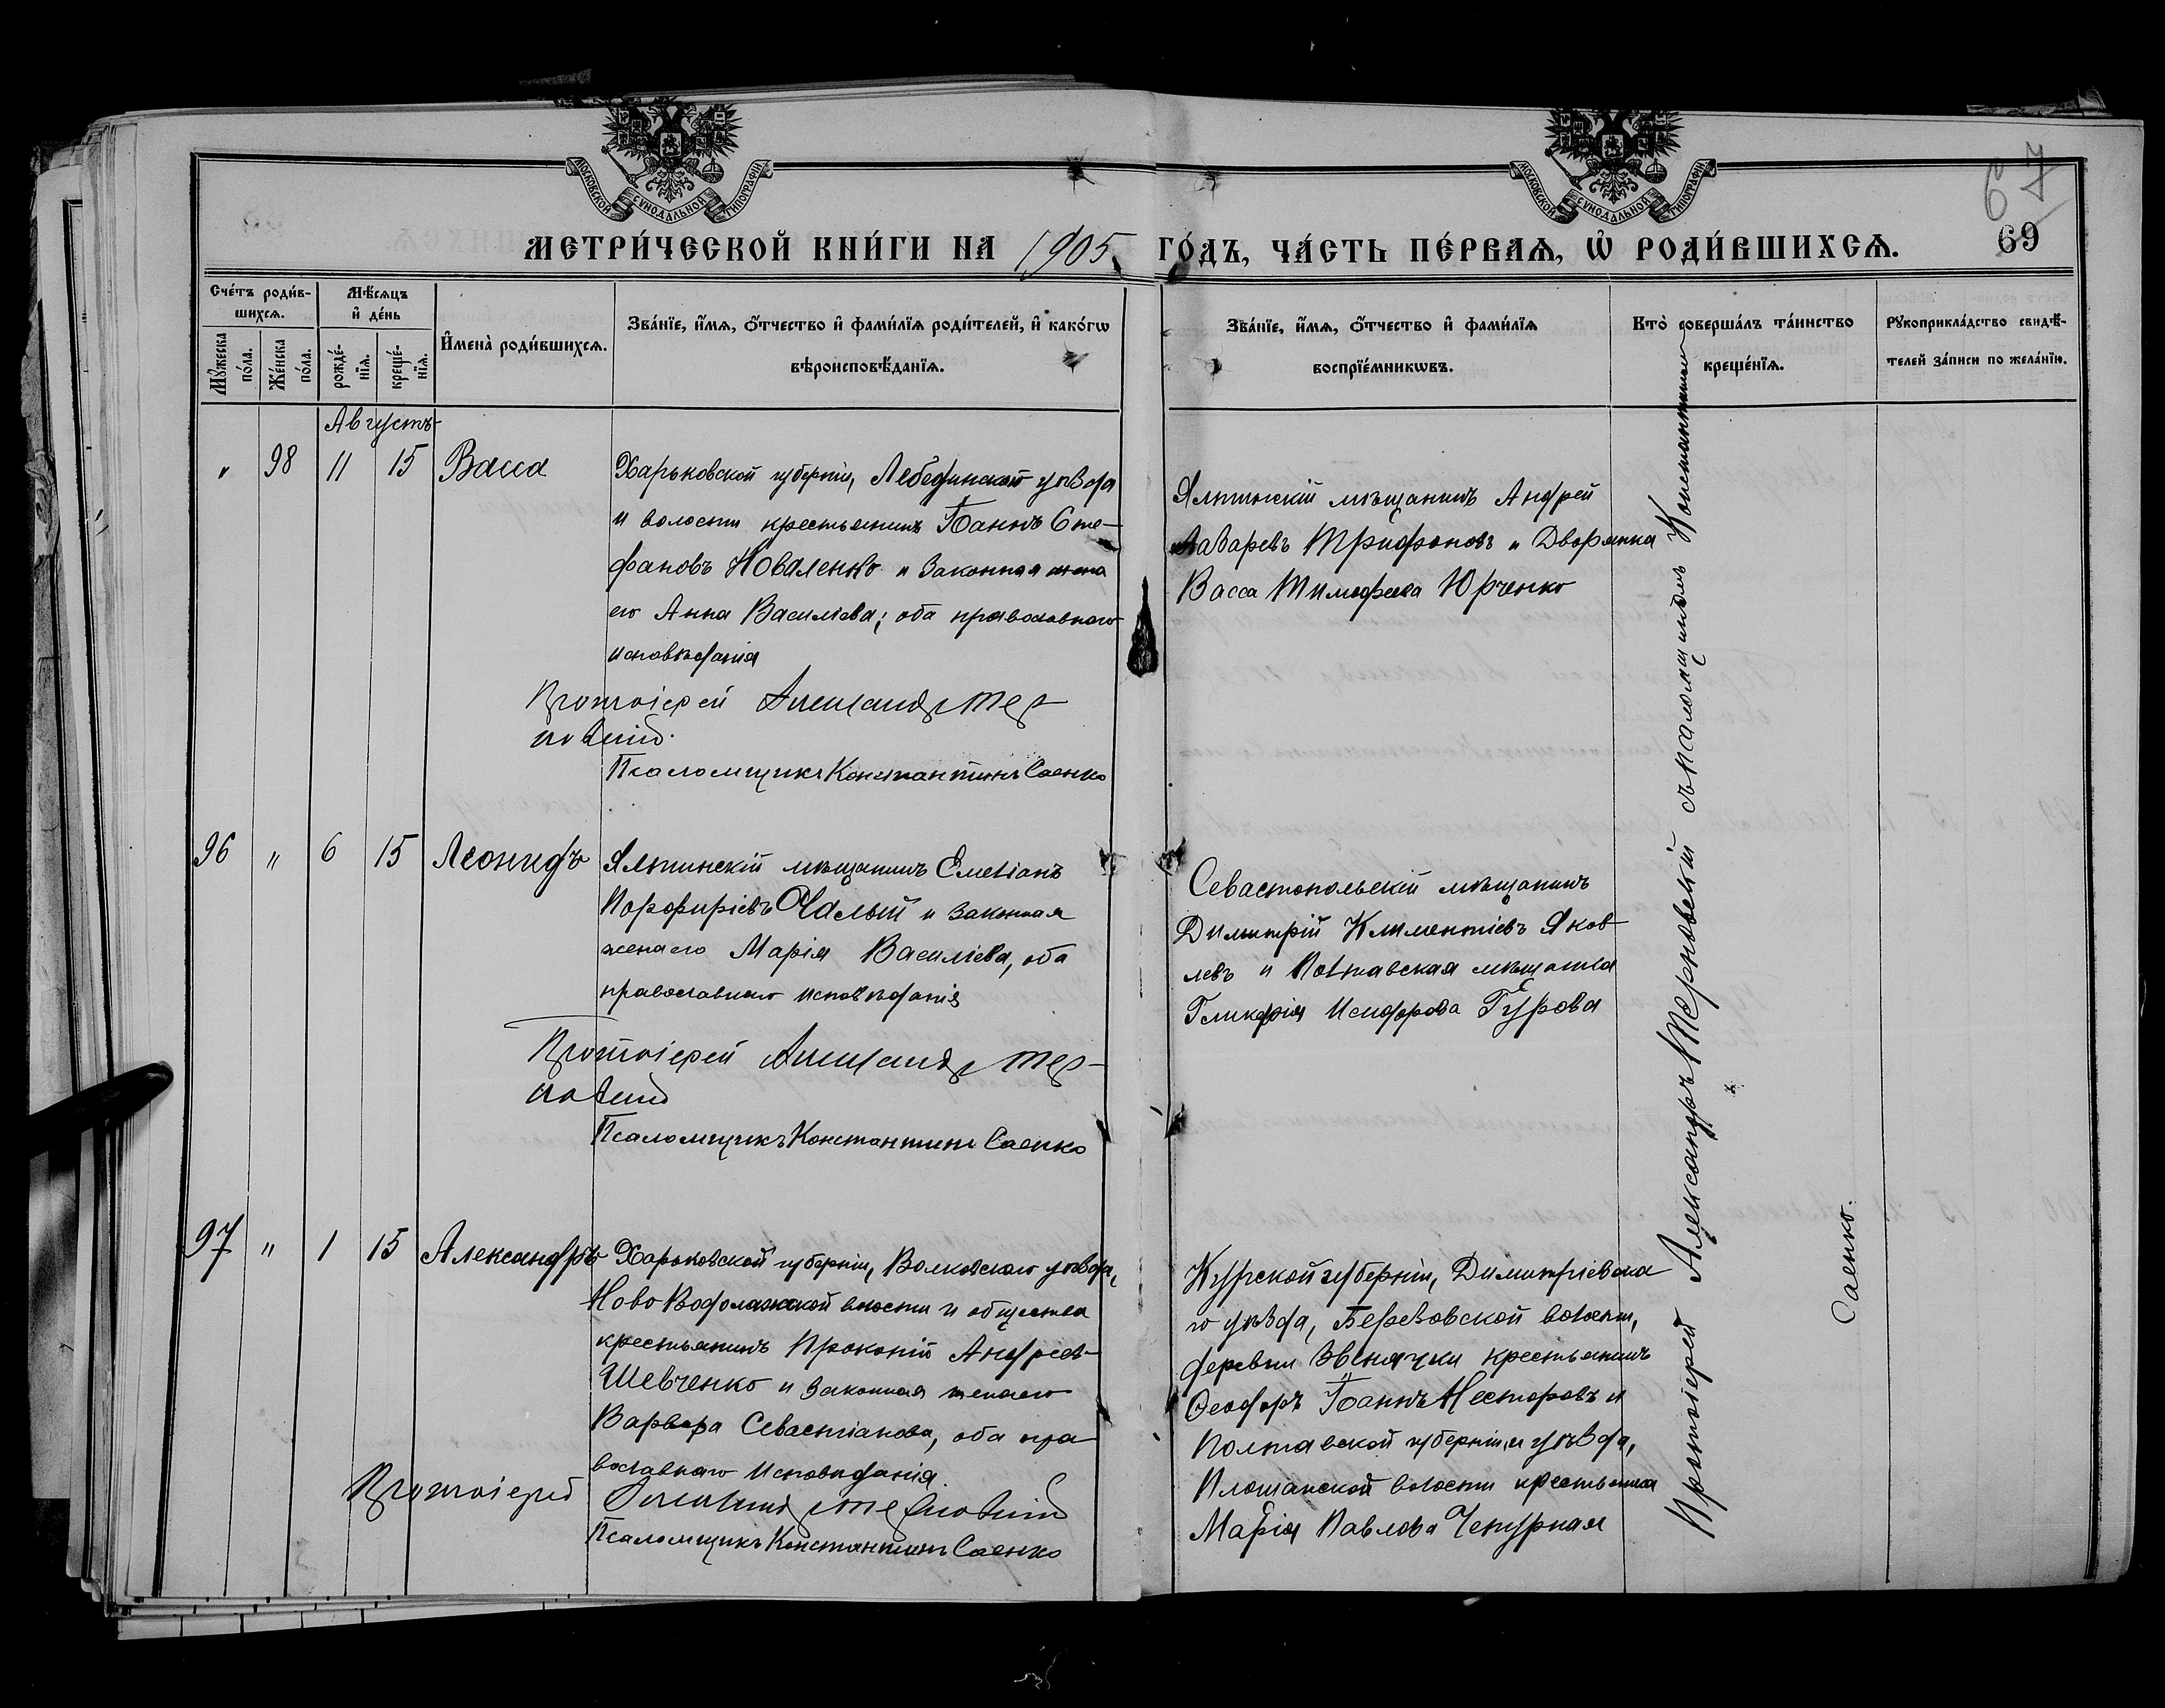 МОСКОВСКОЙ СѴНОДАЛЬНОЙ ТИПОГРАФІИ
МОСКОВСКОЙ СѴНОДАЛЬНОЙ ТИПОГРАФІИ
67
МЕТРИ́ЧЕСКОЙ КНИ́ГИ НА 1905 ГО́ДЪ, ЧА́СТЬ ПЕ́РВАѦ, Ѡ҆ РОДИ́ВШИХСѦ.
69
Сче́тъ роди́в-
шихсѧ.
Мѣ́сѧцъ
и҆ де́нь
Мꙋ́жеска по́ла.
Же́нска по́ла.
рожде́-нїѧ.
креще́-нїѧ.
И҆мена̀ роди́вшихсѧ.
Зва́нїе, и҆́мѧ, ѻ҆́тчество и҆ фами́лїѧ роди́телей, и҆ како́гѡ
вѣроисповѣ́данїѧ.
Зва́нїе, и҆́мѧ, ѻ҆́тчество и҆ фами́лїѧ
воспрїе́мникѡвъ.
Кто̀ соверша́лъ та́инство
креще́нїѧ.
Рꙋкоприкла́дство свидѣ́-
телей за́писи по жела́нїю.
Августъ
" 98 11 15 Васса
Харьковской губерніи, Лебединскаго уѣзда
и волости крестьянинъ Іоаннъ Сте-
фановъ Коваленко и законная жена
его Анна Василіева; оба православнаго
исповѣданія
Протоіерей Александръ Тер-
новскій
Псаломщикъ Константинъ Саенко
Ялтинскій мѣщанинъ Андрей
Лазаревъ Трифоновъ и Дворянка
Васса Тимофеева Юрченко
96 " 6 15 Леонидъ
Ялтинскій мѣщанинъ Емеліанъ
Порфиріевъ Чалый и законная
жена его Марія Василіева, оба
православнаго исповѣданія
Протоіерей Александръ Тер-
новскій
Псаломщикъ Константинъ Саенко
Севастопольскій мѣщанинъ
Димитрій Климентіевъ Яков
левъ и Полтавская мѣщанка
Гликерія Исидорова Гурова
97 " 1 15 Александръ
Харьковской губерніи, Валковскаго уѣзда,
Ново Водолажской волости и общества
крестьянинъ Прокопій Андреевъ
Шевченко и законная жена его
Варвара Севастіанова, оба пра
вославнаго исповѣданія
Протоіерей Александръ Терновскій
Псаломщикъ Константинъ Саенко
Курской губерніи, Димитріевска
го уѣзда, Березовской волости,
деревни Звенячки крестьянинъ
Ѳеодоръ Іоаннъ Несторовъ и
Полтавской губерніи и уѣзда,
волости крестьянка
Марія Павлова Чепурная
Протоіерей Александръ Терновскій съ псаломщикомъ Константиномъ
Саенко.